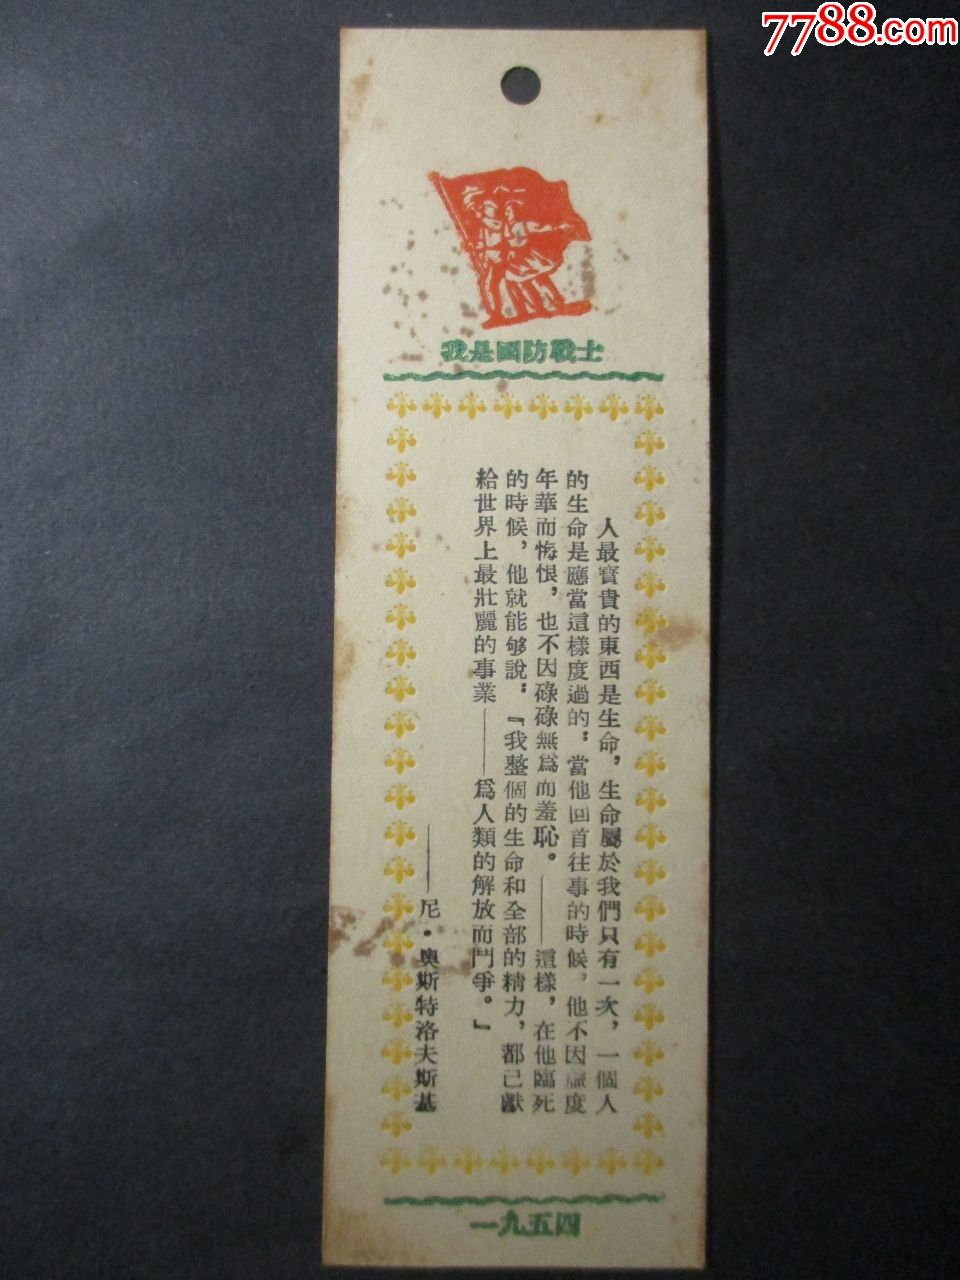 7788.com
我是國防戰士
人最寶貴的東西是生命，生命屬於我們只有一次，一個人
的生命是應當這樣度過的：當他回首往事的時候，他不因虛度
年華而悔恨，也不因碌碌無爲而羞恥。——這樣，在他臨死
的時候，他就能够說：『我整個的生命和全部的精力，都已獻
給世界上最壯麗的事業——爲人類的解放而鬥爭。』
——尼·奥斯特洛夫斯基
一九五四